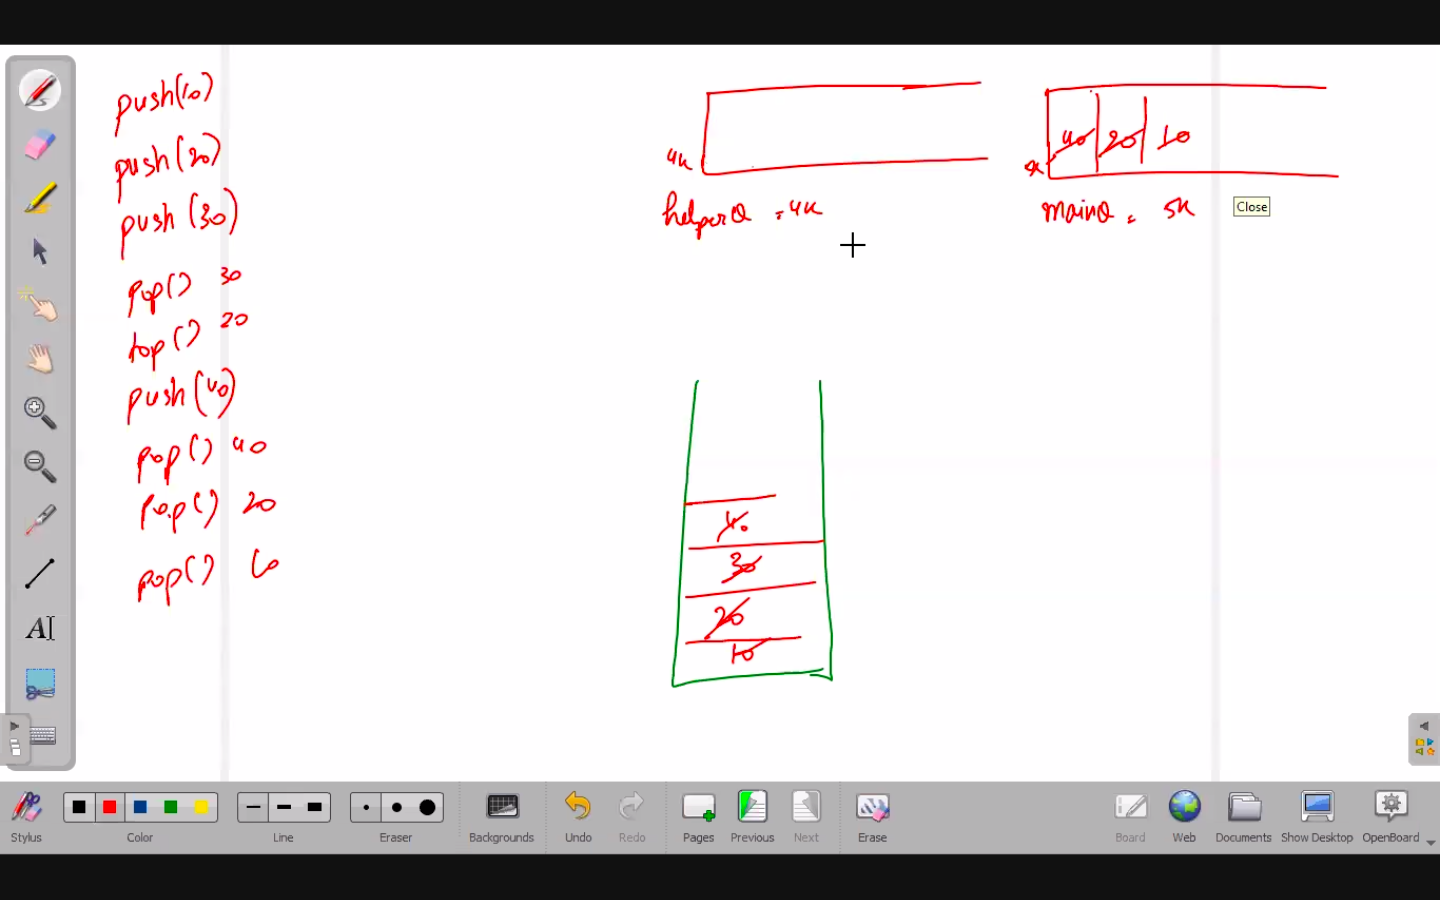 push(10)
push(20)
push(30)
pop() 30
top() 20
push(40)
pop() 40
pop() 20
pop() 10
4k
helperQ = 4k
40 20 10
mainQ = 5k
Close
40
30
20
10
A
Stylus
Color
Line
Eraser
Backgrounds
Undo
Redo
Pages
Previous
Next
Erase
Board
Web
Documents
Show Desktop
OpenBoard